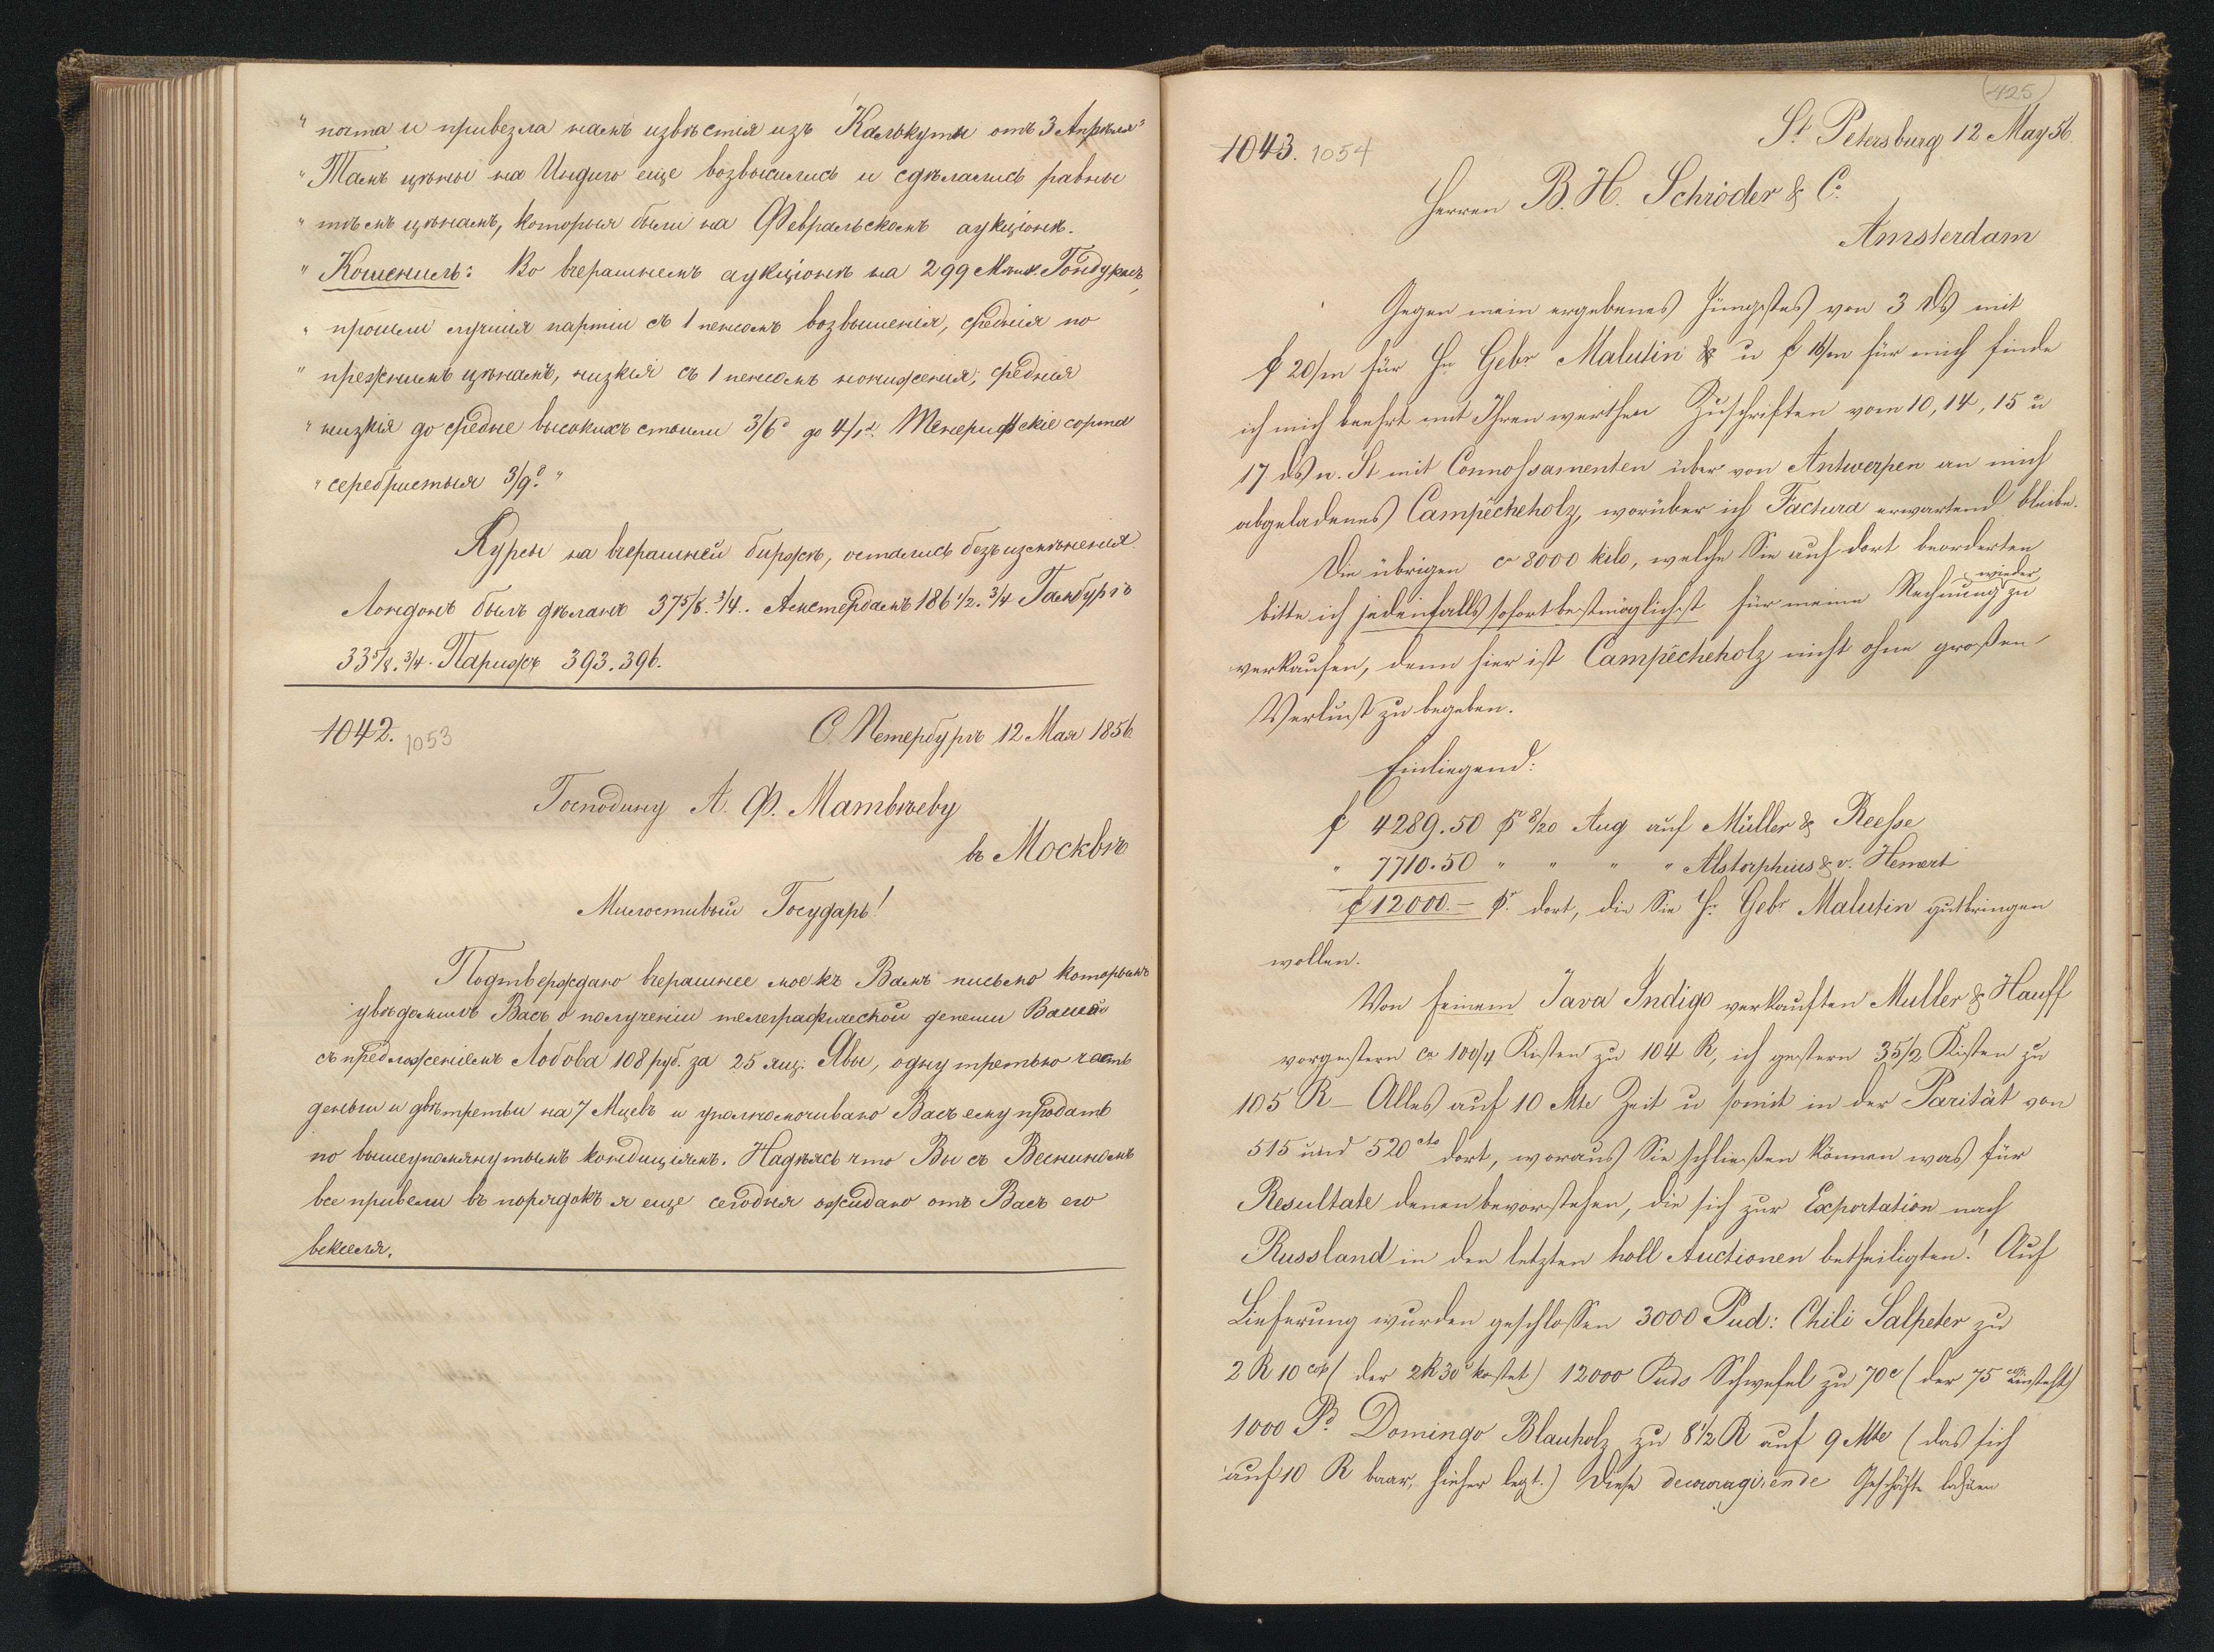 " почта и привезла намъ извѣстія изъ Калькуты отъ 3 Апрѣля"
" Тамъ цѣны на Индиго еще возвысились и сдѣлались равны
" тѣмъ цѣнамъ, которыя были на Февральскомъ аукціонѣ.
" Кошениль: Во вчерашнемъ аукціонѣ на 299 Мѣшк. Гондурасъ,
" прошли лучшія партіи съ 1 пенсомъ возвышенія, средніе по
" прежнимъ цѣнамъ, низкія съ 1 пенсомъ пониженія; средніе
" низкія до средне высокихъ стоили 3/6d до 4/1d. Тенерифскіе сорта
" серебристыя 3/9d. "
Курсы на вчерашней биржѣ, остались безъ измѣненія.
Лондонъ былъ дѣланъ 37 5/8. 3/4. Амстердамъ 186 1/2. 3/4 Гамбургъ
33 5/8. 3/4. Парижъ 393. 396.
1042. 1053 С. Петербургъ 12 Мая 1856
Господину А. Ф. Матвѣеву
въ Москвѣ
Милостивый Государь!
Подтверждаю вчерашнее мое къ Вамъ письмо которымъ
увѣдомилъ Васъ о полученіи телеграфической депеши Вашей
съ предложеніемъ Лобова 108 руб. за 25 ящ. Явы, одну третью часть
деньги и двѣ трети на 7 Мцевъ и уполномочиваю Васъ ему продать
по вышеупомянутымъ кондиціямъ. Надѣясь что Вы съ Веснинымъ
все привели въ порядокъ я еще сегодня ожидаю отъ Васъ его
векселя.
425
St. Petersburg 12 May 56.
1043. 1054
Herren B. H. Schröder & Co.
Amsterdam
Gegen mein ergebenes Jüngstes von 3 ds mit
f 20/m für Hn Gebr Malutin & u f 16/m für mich finde
ich mich beehrt mit Ihren werthen Zuschriften vom 10, 14, 15 u
17 ds n. St mit Connossamenten über von Antwerpen an mich
abgeladenes Campêcheholz, worüber ich Factura erwartend bleibe.
Die übrigen ca 8000 kilo, welche Sie auf dort beorderten
bitte ich jedenfalls sofort bestmöglichst für meine Rechnung wieder zu
verkaufen, denn hier ist Campêcheholz nicht ohne großen
Verlust zu begeben.
Einliegend:
f 4289.50 pr 8/20 Aug auf Müller & Reesse
" 7710.50 " " " " Alstorphius & v. Hemert
f 12000.– pr. dort, die Sie Hn Gebr Malutin gutbringen
wollen.
Von feinem Java Indigo verkauften Muller & Hauff
vorgestern ca 100/4 Kisten zu 104 R, ich gestern 35/2 Kisten zu
105 R – Alles auf 10 Mte Zeit u somit in der Parität von
515 und 520 cts dort, woraus Sie schließen können was für
Resultate denen bevorstehen, die sich zur Exportation nach
Russland in den letzten holl Auctionen betheiligten! Auf
Lieferung wurden geschlossen 3000 Pud: Chili Salpeter zu
2 R 10 cop (der 2 R 30 c kostet) 12000 Puds Schwefel zu 70 c (der 75 cop einsteht)
1000 Pd. Domingo Blauholz zu 8 1/2 R auf 9 Mte (das sich
auf 10 R baar, hieher legt.) Diese decouragirende Geschäfte